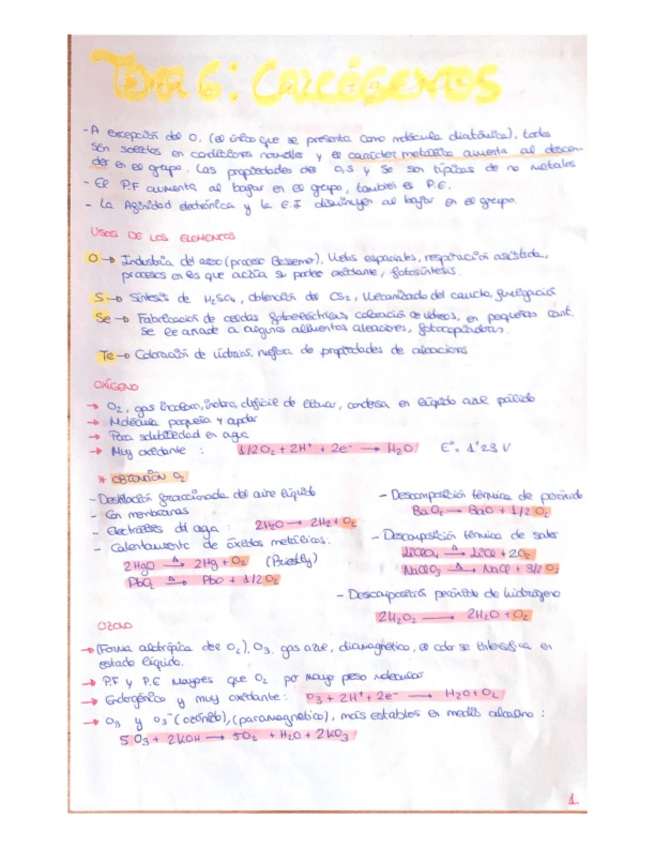 Tema 6: Carcógenos
- A excepción del O, (el único que se presenta como molécula diatómica), todos
son sólidos en condiciones normales y el carácter metálico aumenta al descen-
der en el grupo. Las propiedades del O, S y Se son típicas de no metales
- El P.F aumenta al bajar en el grupo, también el P.E.
- La Afinidad electrónica y la E.I disminuyen al bajar en el grupo.
USOS DE LOS ELEMENTOS
O → Industria del acero (proceso Bessemer), Vuelos espaciales, respiración asistida,
procesos en los que actúa su poder oxidante, fotosíntesis.
S → Síntesis de H₂SO₄, obtención del CS₂, Vulcanizado del caucho, fumigación
Se → Fabricación de celdas fotoeléctricas, coloración de vidrios, en pequeñas cant.
se le añade a algunos alimentos, aleaciones, fotocopiadoras.
Te → Coloración de vidrios, mejora de propiedades de aleaciones
OXÍGENO
→ O₂, gas incoloro, inodoro, difícil de licuar, condensa en líquido azul pálido
→ Molécula pequeña y apolar
→ Poca solubilidad en agua
→ Muy oxidante : 1/2O₂ + 2H⁺ + 2e⁻ → H₂O E°= 1'23 V
* OBTENCIÓN O₂
- Destilación fraccionada del aire líquido
- Con membranas
- Electrólisis del agua : 2H₂O → 2H₂ + O₂
- Calentamiento de óxidos metálicos:
2HgO →Δ 2Hg + O₂ (Priestly)
PbO₂ →Δ PbO + 1/2O₂
- Descomposición térmica de peróxido
BaO₂ → BaO + 1/2O₂
- Descomposición térmica de sales
LiClO₄ →Δ LiCl + 2O₂
NaClO₃ →Δ NaCl + 3/2O₂
- Descomposición peróxido de hidrógeno
2H₂O₂ → 2H₂O + O₂
OZONO
→ (Forma alotrópica del O₂), O₃. gas azul, diamagnético, el color se intensifica en
estado líquido.
→ P.F y P.E Mayores que O₂ por mayor peso molecular
→ Endogénico y muy oxidante: O₃ + 2H⁺ + 2e⁻ → H₂O + O₂
→ O₃ y O₃⁻ (ozónido), (paramagnético), más estables en medio alcalino :
5O₃ + 2KOH → 5O₂ + H₂O + 2KO₃
1.